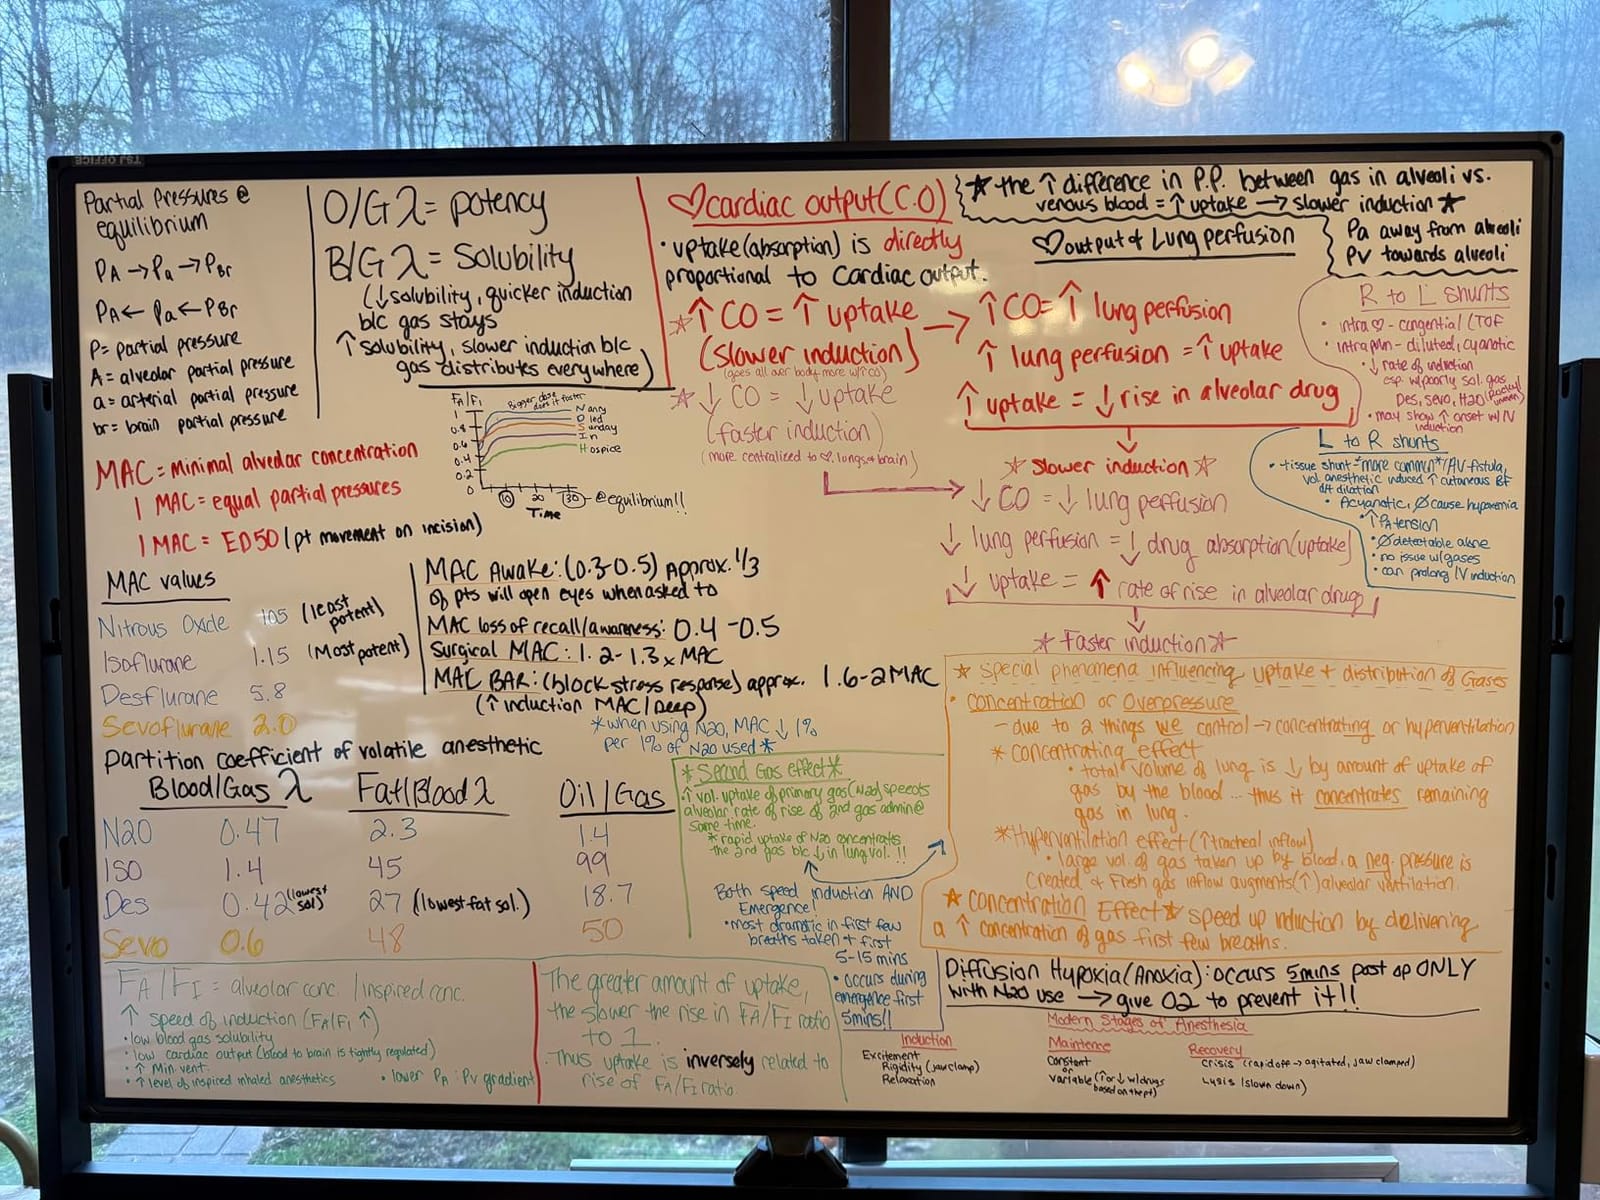 Partial Pressures @
equilibrium
PA → Pa → PBr
PA ← Pa ← PBr
P = partial pressure
A = alveolar partial pressure
a = arterial partial pressure
br = brain partial pressure
O/G λ = potency
B/G λ = Solubility
(↓ solubility, quicker induction
b/c gas stays
↑ solubility, slower induction b/c
gas distributes everywhere)
FA/FI
Bigger dose
does it faster
1
0.8
0.6
0.4
0.2
0
Nanny
Died
Sunday
In
Hospice
10 20 30 - @equilibrium!!
Time
MAC = Minimal alveolar concentration
1 MAC = equal partial pressures
1 MAC = ED50 (pt movement on incision)
MAC values
Nitrous Oxide 105 (least
potent)
Isoflurane 1.15 (Most potent)
Desflurane 5.8
Sevoflurane 2.0
MAC Awake: (0.3-0.5) Approx. 1/3
of pts will open eyes when asked to
MAC loss of recall/awareness: 0.4-0.5
Surgical MAC: 1.2-1.3 x MAC
MAC BAR: (block stress response) approx. 1.6-2 MAC
(↑ induction MAC/Deep)
*when using N2O, MAC ↓ 1%
per 1% of N2O used*
Partition coefficient of volatile anesthetic
Blood/Gas λ Fat/Blood λ Oil/Gas
N2O 0.47 2.3 1.4
ISO 1.4 45 99
Des 0.42 (lowest sol) 27 (lowest fat sol.) 18.7
Sevo 0.6 48 50
FA/FI = alveolar conc. /inspired conc.
↑ speed of induction (FA/FI ↑)
• low blood gas solubility
• low cardiac output (blood to brain is tightly regulated)
• ↑ Min vent
• ↑ level of inspired inhaled anesthetics • lower PA : PV gradient
The greater amount of uptake,
the slower the rise in FA/FI ratio
to 1.
Thus uptake is inversely related to
rise of FA/FI ratio.
♡ cardiac output (C.O)
• uptake (absorption) is directly
proportional to Cardiac output.
☆ ↑ CO = ↑ uptake →
(slower induction)
(goes all over body more w/↑CO)
☆ ↓ CO = ↓ uptake
(faster induction)
(more centralized to ♡, lungs & brain)
☆ the ↑ difference in P.P. between gas in alveoli vs.
venous blood = ↑ uptake → slower induction ☆
♡ output & Lung perfusion
Pa away from alveoli
PV towards alveoli
↑ CO = ↑ lung perfusion
↑ lung perfusion = ↑ uptake
↑ uptake = ↓ rise in alveolar drug
☆ Slower induction ☆
↓ CO = ↓ lung perfusion
↓ lung perfusion = ↓ drug absorption (uptake)
↓ uptake = ↑ rate of rise in alveolar drug
☆ Faster induction ☆
R to L shunts
• intra ♡ - congential (TOF
• intrapulm - diluted, cyanotic
• ↓ rate of induction
esp w/poorly sol. gas
Des, sevo, N2O
• may show ↑ onset w/IV
induction
L to R shunts
• tissue shunt *more common* /AV-fistula,
vol. anesthetic induced ↑ cutaneous BF
d/t dilation
• Acyanotic, Ø cause hypoxemia
• ↑ PA tension
• Ø detectable alone
• no issue w/gases
• can prolong IV induction
☆ Special phenomena influencing uptake + distribution of Gases
• Concentration or Overpressure
- due to 2 things we control → concentrating or hyperventilation
* Concentrating effect
• total volume of lung is ↓ by amount of uptake of
gas by the blood... thus it concentrates remaining
gas in lung.
* Hyperventilation effect (↑ tracheal inflow)
• large vol. of gas taken up by blood, a neg. pressure is
created & Fresh gas inflow augments (↑) alveolar ventilation.
☆ Concentration Effect ☆ speed up induction by delivering
a ↑ concentration of gas first few breaths.
* Second Gas effect *
↑ vol. uptake of primary gas (N2O) speeds
alveolar rate of rise of 2nd gas admin @
same time.
* rapid uptake of N2O concentrates
the 2nd gas b/c ↓ in lung vol. !!
Both speed induction AND
Emergence!
• most dramatic in first few
breaths taken + first
5-15 mins
• occurs during
emergence first
5mins!!
Diffusion Hypoxia (Anoxia): occurs 5mins post op ONLY
with N2O use → give O2 to prevent it!!
Modern Stages of Anesthesia
Induction
Excitement
Rigidity (jaw clamp)
Relaxation
Maintence
Constant
or
Variable (↑ or ↓ w/drugs
based on the pt)
Recovery
Crisis (rapid off → agitated, jaw clamped)
Lysis (slow down)